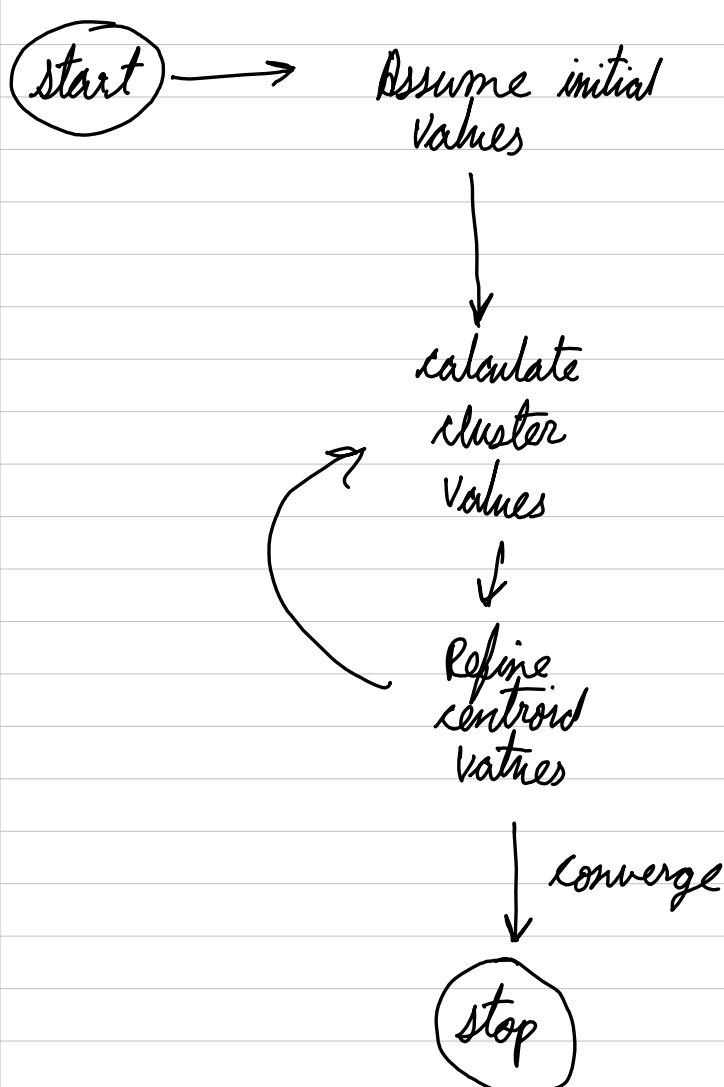 start
Assume initial
values
calculate
cluster
values
Refine
centroid
values
converge
stop